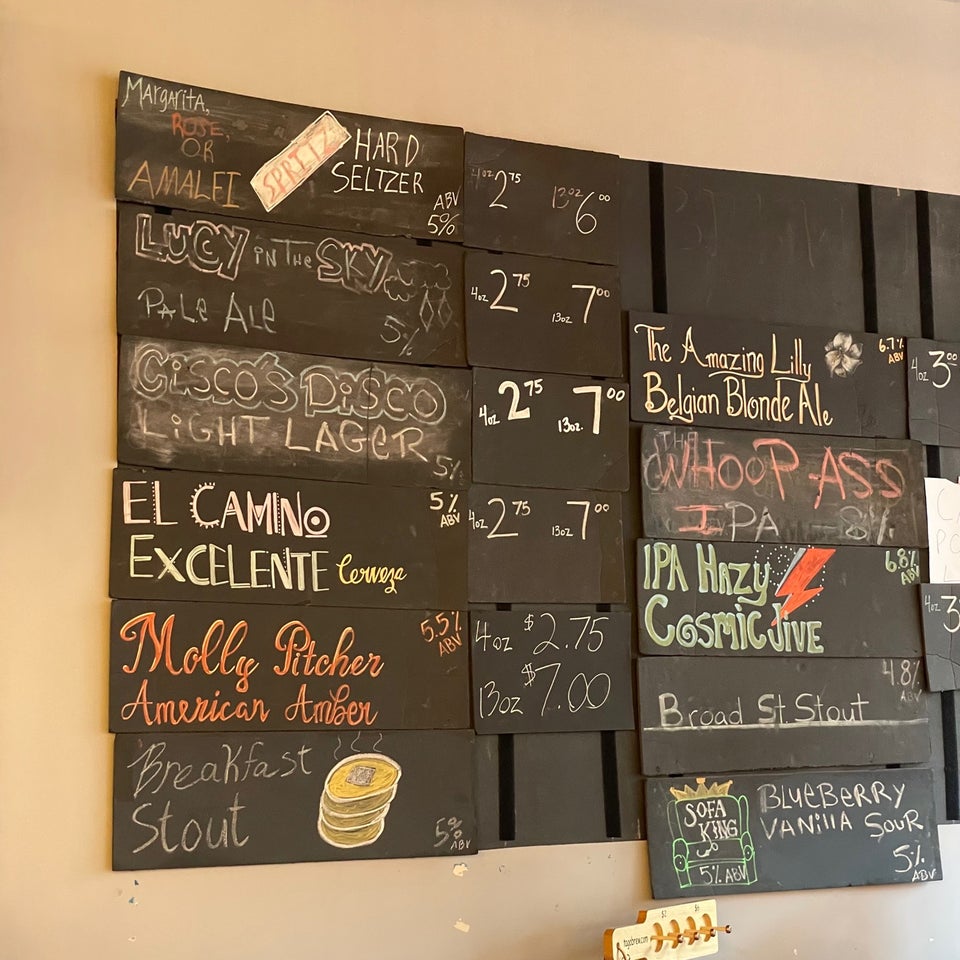 Margarita,
Rose,
OR
AMALFI
SPRITZ
HARD
SELTZER
ABV
5%
4oz 2.75
13oz 6.00
LUCY IN THE SKY
PALE ALE
5%
4oz 2.75
13oz 7.00
CISCO'S DISCO
LIGHT LAGER
5%
4oz 2.75
13oz. 7.00
EL CAMINO
EXCELENTE Cerveza
5%
ABV
4oz 2.75
13oz 7.00
Molly Pitcher
American Amber
5.5%
ABV
4oz $2.75
13oz $7.00
Breakfast
Stout
5%
ABV
The Amazing Lilly
Belgian Blonde Ale
6.7%
ABV
4oz 3.00
WHOOP ASS
IPA 8%
IPA HAZY
COSMIC JIVE
6.8%
ABV
4oz 3
Broad St. Stout
4.8%
ABV
SOFA
KING
5% ABV
BLUEBERRY
VANILLA SOUR
5%
ABV